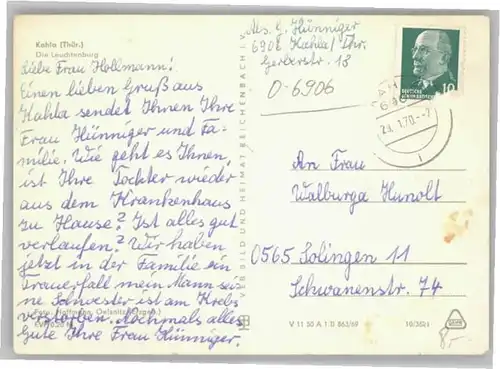 Kahla (Thür.)
Die Leuchtenburg
Liebe Frau Hollmann!
Einen lieben Gruß aus
Kahla sendet Ihnen Ihre
Frau Hünniger und Fa-
milie. Wie geht es Ihnen,
ist Ihre Tochter wieder
aus dem Krankenhaus
zu Hause? Ist alles gut
verlaufen? Wir haben
jetzt in der Familie ein
Trauerfall mein Mann sei-
ne Schwester ist am Krebs
verstorben. Nochmals alles
Gute Ihre Frau Hünniger.
VEB BILD UND HEIMAT REICHENBACH I. V.
Abs. G. Hünniger
6906 Kahla/Thr.
Gerberstr. 18
O-6906
10
24.1.70-7
An Frau
Walburga Hunolt
0565 Solingen 11
Schwanenstr. 74
V 11 50 A 1 D 863/69